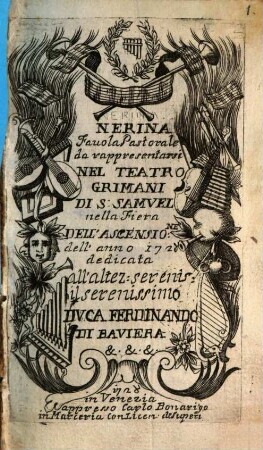 1.
NERINA
Fauola Pastorale
da rappresentarsi
NEL TEATRO
GRIMANI
DI S. SAMUEL
nella Fiera
DELL'ASCENSIONE
dell'anno 1728
dedicata
all'altez: serenis:
il serenissimo
DUCA FERDINANDO
DI BAVIERA
&. &. &
1728
in Venezia
appresso Carlo Bonarigo
in Marceria con Licen: de Superi